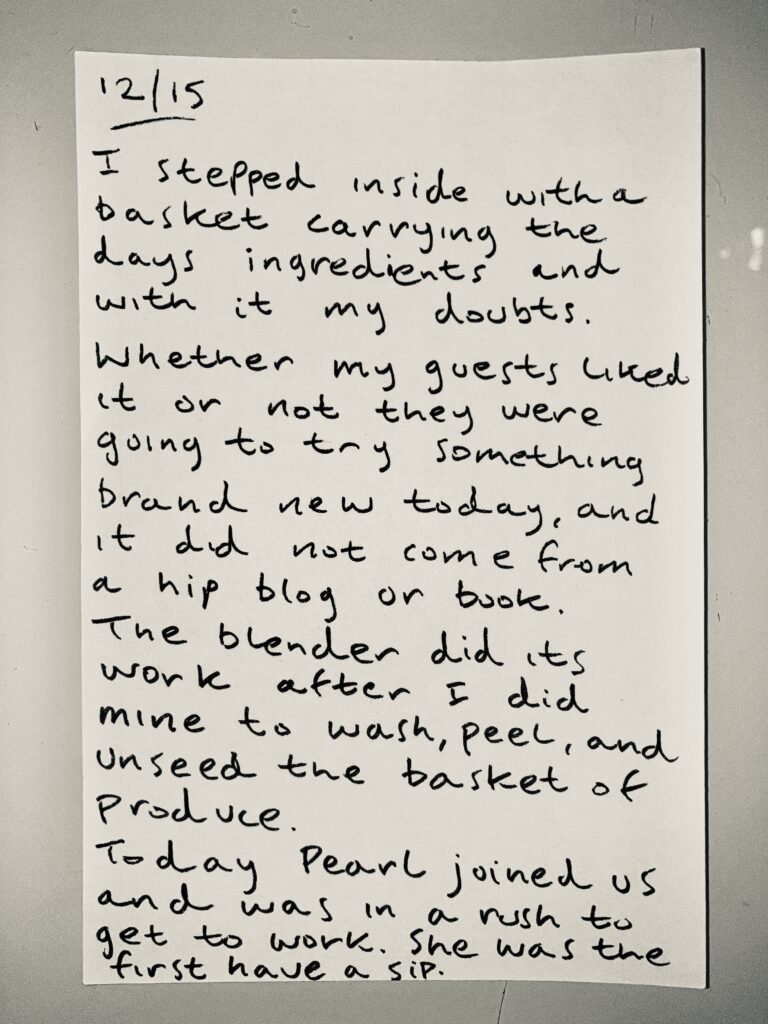 12/15
I stepped inside with a
basket carrying the
days ingredients and
with it my doubts.
Whether my guests liked
it or not they were
going to try something
brand new today, and
it did not come from
a hip blog or book.
The blender did its
work after I did
mine to wash, peel, and
unseed the basket of
produce.
Today Pearl joined us
and was in a rush to
get to work. She was the
first have a sip.